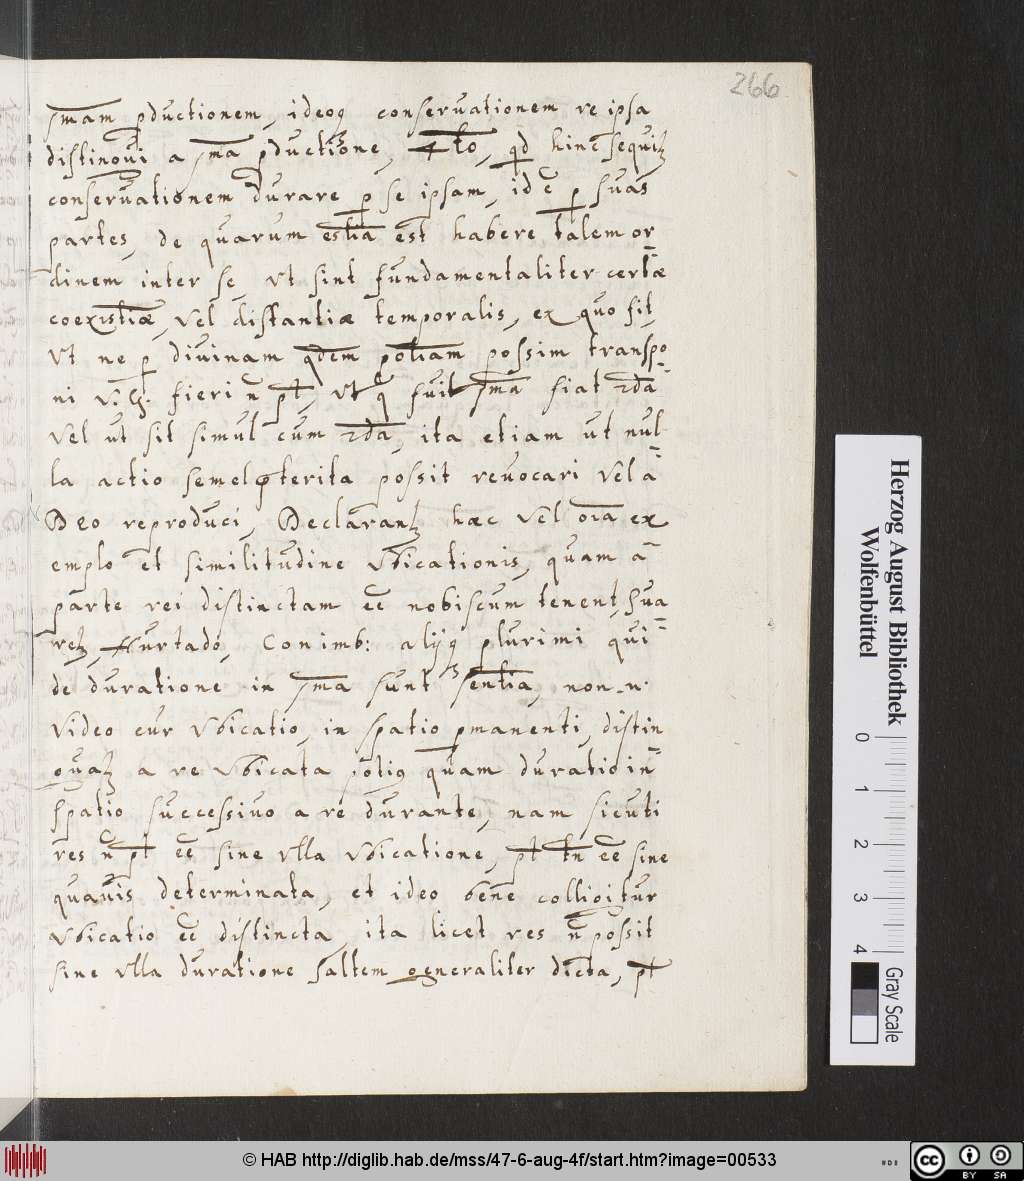 266
1mam pductionem, ideoq conseruationem re ipsa
distingui a 1ma pductione, 4to, qd hinc sequitʒ
conseruationem durare p se ipsam, id ē p suas
partes, de quarum estīa est habere talem or-
dinem inter se, Ut sint fundamentaliter certæ
coexistīæ, vel distantiæ temporalis, ex quo fit,
Ut ne p diuinam qdem potīam possim transpo-
ni v.g. fieri n̄ pt, Ut q fuit 1ma fiat 2da
Vel ut sit simul cum 2da, ita etiam ut nul-
la actio semel pterita possit reuocari vel a
Deo reproduci, Declarantʒ hæc vel oīa ex
emplo et similitudine Vbicationis, quam a-
parte rei distinctam eē nobiscum tenent, Sua-
reʒ, Hurtado, Conimb: alijq plurimi qui-
de duratione in 1ma sunt sentīa, non n.
Video cur Vbicatio, in spatio pmanenti, distin
guatʒ a re Vbicata potiq quam duratio in-
spatio successiuo a re durante, nam sicuti
res n̄ pt eē sine vlla Vbicatione, pt tn̄ eē sine
quauis determinata, et ideo bene colligitur
Vbicatio eē distincta, ita licet res n̄ possit
sine vlla duratione saltem generaliter dicta, pt
Herzog August Bibliothek
Wolfenbüttel
0 1 2 3 4
Gray Scale
© HAB http://diglib.hab.de/mss/47-6-aug-4f/start.htm?image=00533
cc BY SA